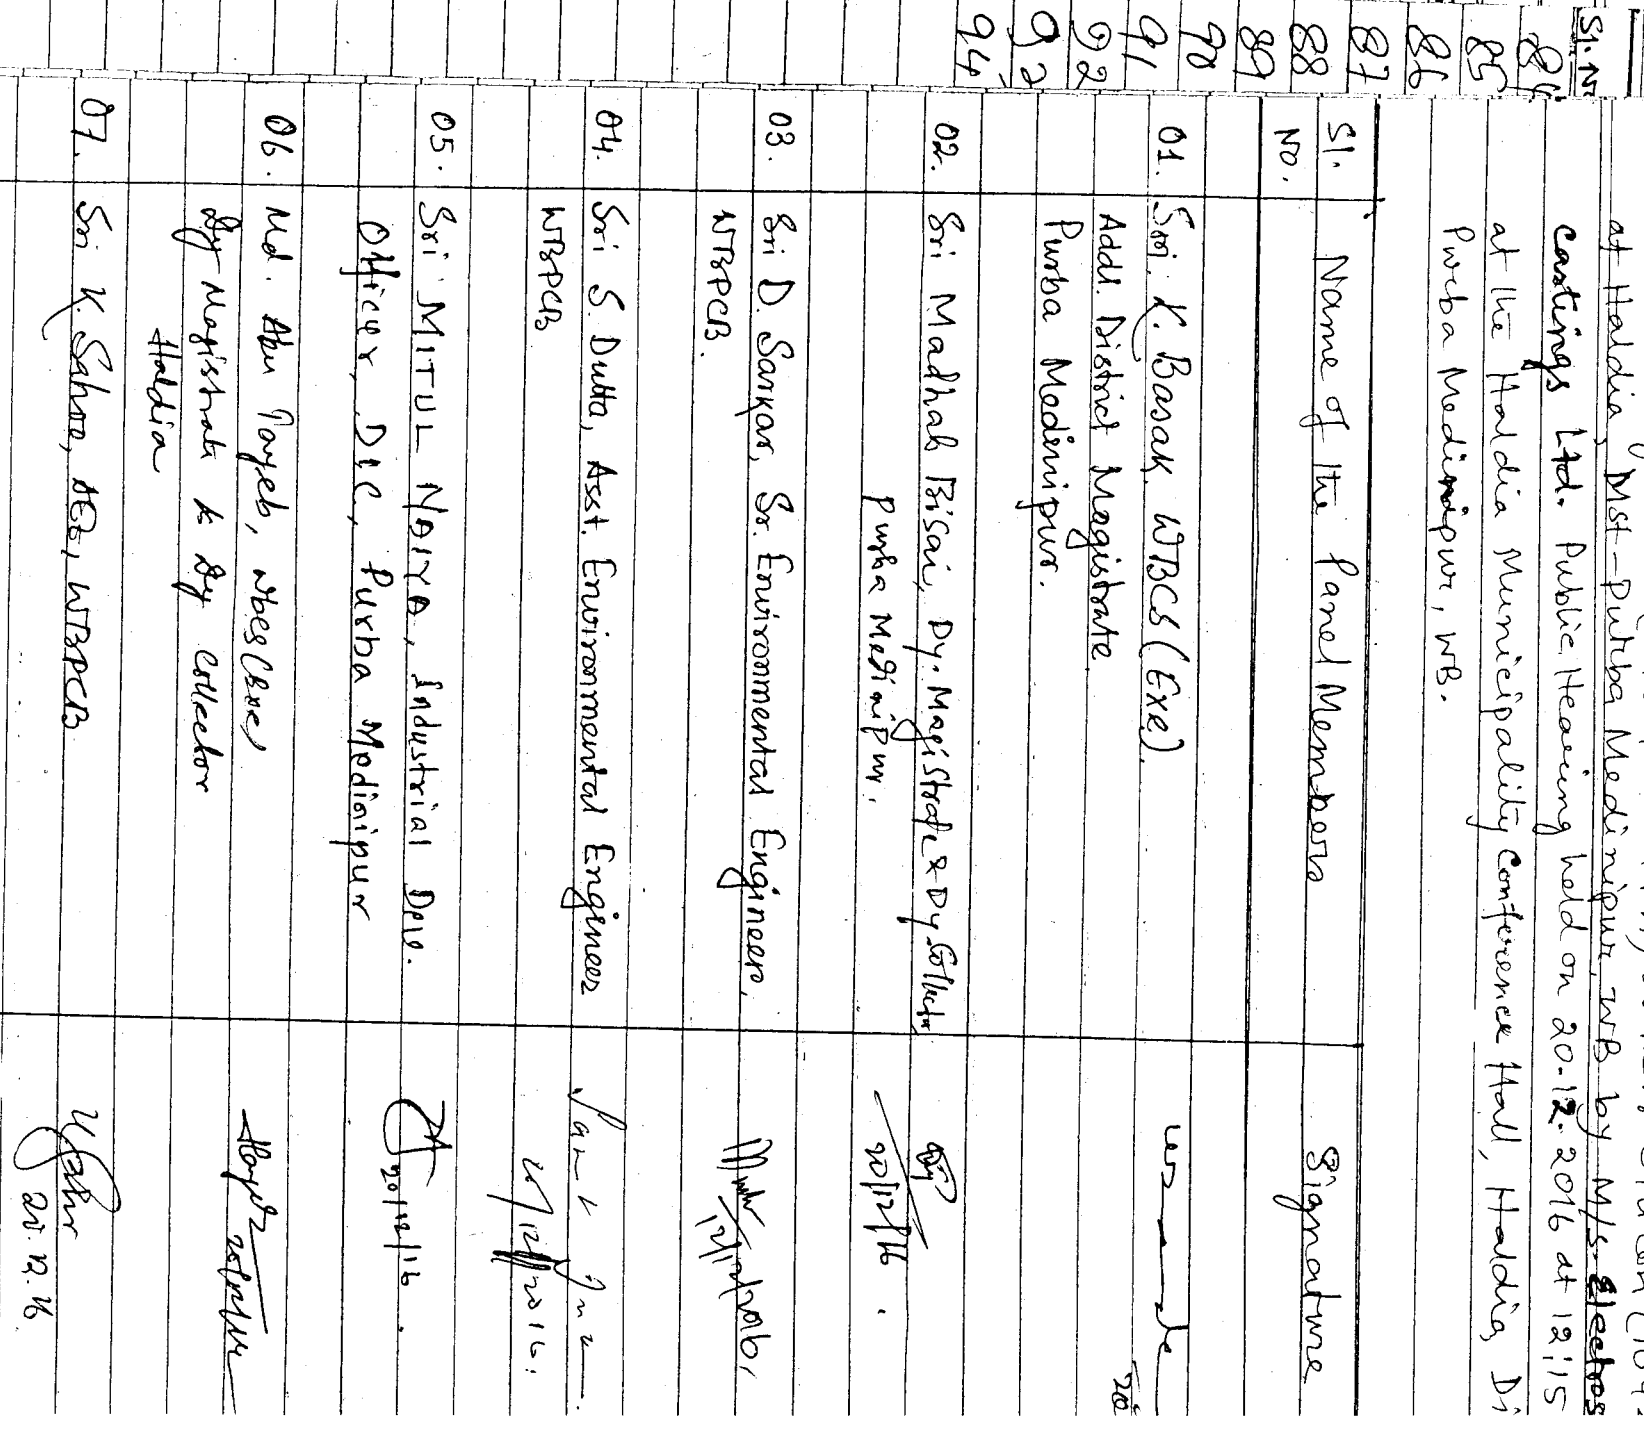 at Haldia, Dist-Purba Medinipur, WB by M/s. Electros
castings Ltd. Public Hearing held on 20.12.2016 at 12:15
at the Haldia Municipality Conference Hall, Haldia, Di
Purba Medinipur, WB.
Sl. No. Name of the Panel Members Signature
01. Sri. K. Basak, WBCS (Exe)
Addl. District Magistrate
Purba Medinipur.
02. Sri Madhab Bisai, Dy. Magistrate & Dy Collector
Purba Medinipur. 20/12/16
03. Sri D. Sarkar, Sr. Environmental Engineer,
WBPCB.
04. Sri S. Dutta, Asst. Environmental Engineer
WBPCB
05. Sri MITUL NAIYA, Industrial Deve.
Officer, DIC, Purba Medinipur 20/12/16
06. Md. Abu Tayeb,
Dy Magistrate & Dy Collector
Haldia
07. Sri K. Sahoo, AEE, WBPCB
20.12.16
Sl. N
84
85
86
87
88
89
90
91
92
92
94